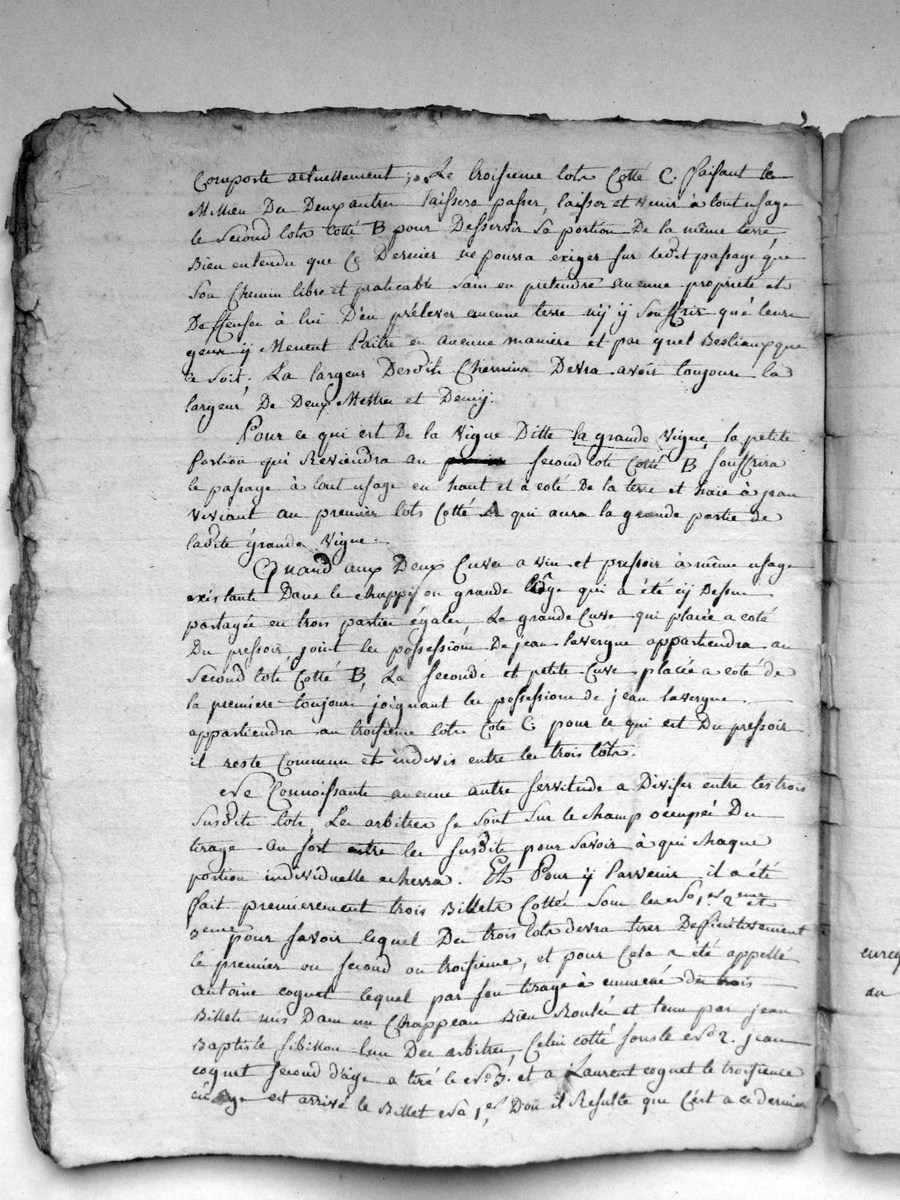 Composte actuellement ; Le troisieme lots Cotté C. faisant le
Millieu Des Deux autres laissera passer, laisser et venir à tout usage
le Second lots Cotté B pour Desservir Sa portion De la même terre
Bien entendu que Ce Dernier ne pourra exiger sur ledit passage que
Son Chemin libre et praticable sans en pretendre aucune propriété et
Deffense à lui D'en prélever aucune terre n'y y Souffrir que leurs
gens y Menent Paître en aucune maniere et par quel Bestiaux que
ce Soit, La largeur Desdits Chemins Devra avoir toujours la
largeur De Deux Metres et Demy.
Pour ce qui est De la Vigne Ditte la grande Vigne, la petite
Portion qui Reviendra au second lots Cotté B souffrira
le passage à tout usage en haut et a coté De la terre et haie à jean
Viviant au premier lots Cotté A qui aura la grande partie de
ladite Grande Vigne.
Quand aux Deux Cuves a vin et pressoir à même usage
existants Dans le chappis ou grande qui a été cy Dessus
partagée en trois parties égales, La grande Cuve qui placée a coté
Du pressoir, joint les possessions De jean Lavergne appartiendra au
Second lots Cotté B, La Seconde et petite Cuve placée a coté de
la premiere toujours joignant les possessions de jean Lavergne
appartiendra au troisieme lots Coté C. pour ce qui est Du pressoir
il reste Commun et indivis entre les trois lots.
Ne Connoissants aucune autre servitude a Diviser entre les trois
Susdits lots Les arbitres se sont Sur le champ occupés Du
tirage au sort entre les susdits pour savoir à qui chaque
portion individuelle echerra. Et Pour y Parvenir il a été
fait premierement trois Billets Cottés Sous les No. 1er 2eme et
3eme pour savoir lequel Des trois lots devra tirer Deffinitivement
le premier ou second ou troisieme, et pour Cela a été appellé
Antoine coquet lequel par son tirage à emmené des trois
Billets mis Dans un Chappeau Bien Roulés et tenu par jean
Baptiste l'un Des arbitres, Celui cotté sous le No 2. jean
coquet second d'âge a tiré le No 3. et a Laurent coquet le troisieme
en age est arrivé le Billet No 1er, D'ou il Resulte que C'est a ce dernier
au